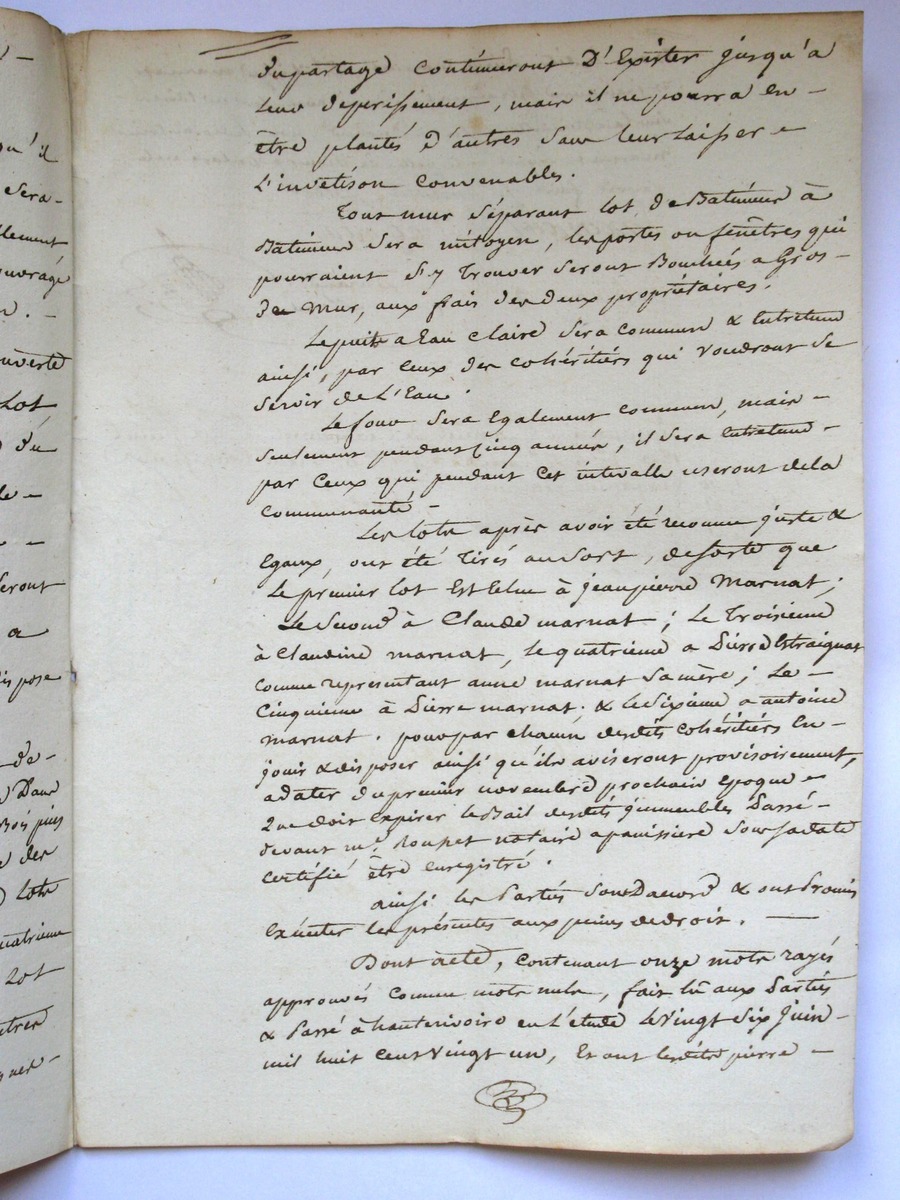 Du partage continueront D'Exister jusqu'a
Leur deperissement, mais il ne pourra en –
être plantés D'autres Sans leur Laisser –
L'invétison Convenables.
Tout mur Séparant lot de Batimens à
Bâtimens Sera mitoyen, les portes ou fenêtres qui
pourraient S'y Trouver Seront Bouchées a Gros –
De Mur, aux frais des deux propriétaires.
Le puits a Eau Claire Sera Commun & Entretenu
ainsi, par Ceux des Cohéritiers qui Voudront Se
Servir de L'Eau.
Le four Sera Egalement Commun, mais –
Seulement pendant Cinq années, il Sera Entretenu –
par Ceux qui pendant Cet intervalle useront de la
Communauté. –
Les lots après avoir été reconnu juste &
Egaux, ont été Tirés au Sort, de sorte que
Le premier lot Est Echu à Jeanpierre Marnat;
Le Second à Claude marnat; Le Troisieme
à Claudine marnat, le quatrieme a Pierre Estraignat
Comme representant anne marnat Sa mère; Le –
Cinquieme à Pierre marnat. & le Sixieme a antoine
marnat. pour par chacun desdits Cohéritiers En –
jouir & disposer ainsi qu'ils aviseront provisoirement,
a dater du premier novembre prochain époque –
Que doit Expirer le Bail desdits immeubles Passé –
devant me. Roupet notaire a panissiere Sous sa date
Certifié être Enregistré.
ainsi les Parties Sont Dacord & ont Promis
Exécuter les présentes aux peines de droit. —
Dont acte, Contenant onze mots rayés
approuvés Comme mots nuls, fait lû aux Parties
& Passé à hauterivoire en L'étude Le Vingt Six Juin –
mil huit Cent Vingt un, Et ont lesdits pierre –
qu'il
Sera –
ouvragé
ouverte
Lot
Du
Seront
a
dispose
de –
Dans
Bois pins
des
Lots
quatrieme
Lot